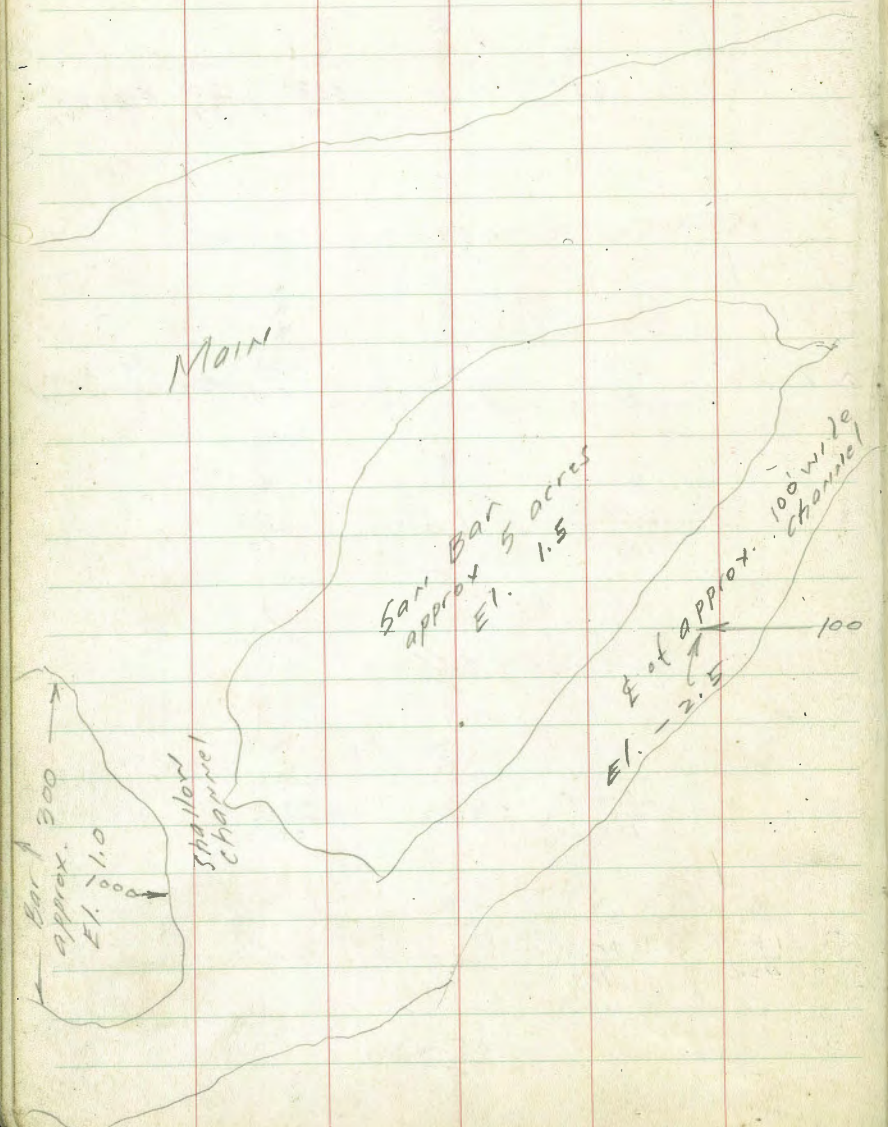 Main
San Bar
approx 5 acres
El. 1.5
℄ of approx. 100' wide
channel
100
El. - 2.5
Shallow
channel
Bar
approx. 300
El. 1.0